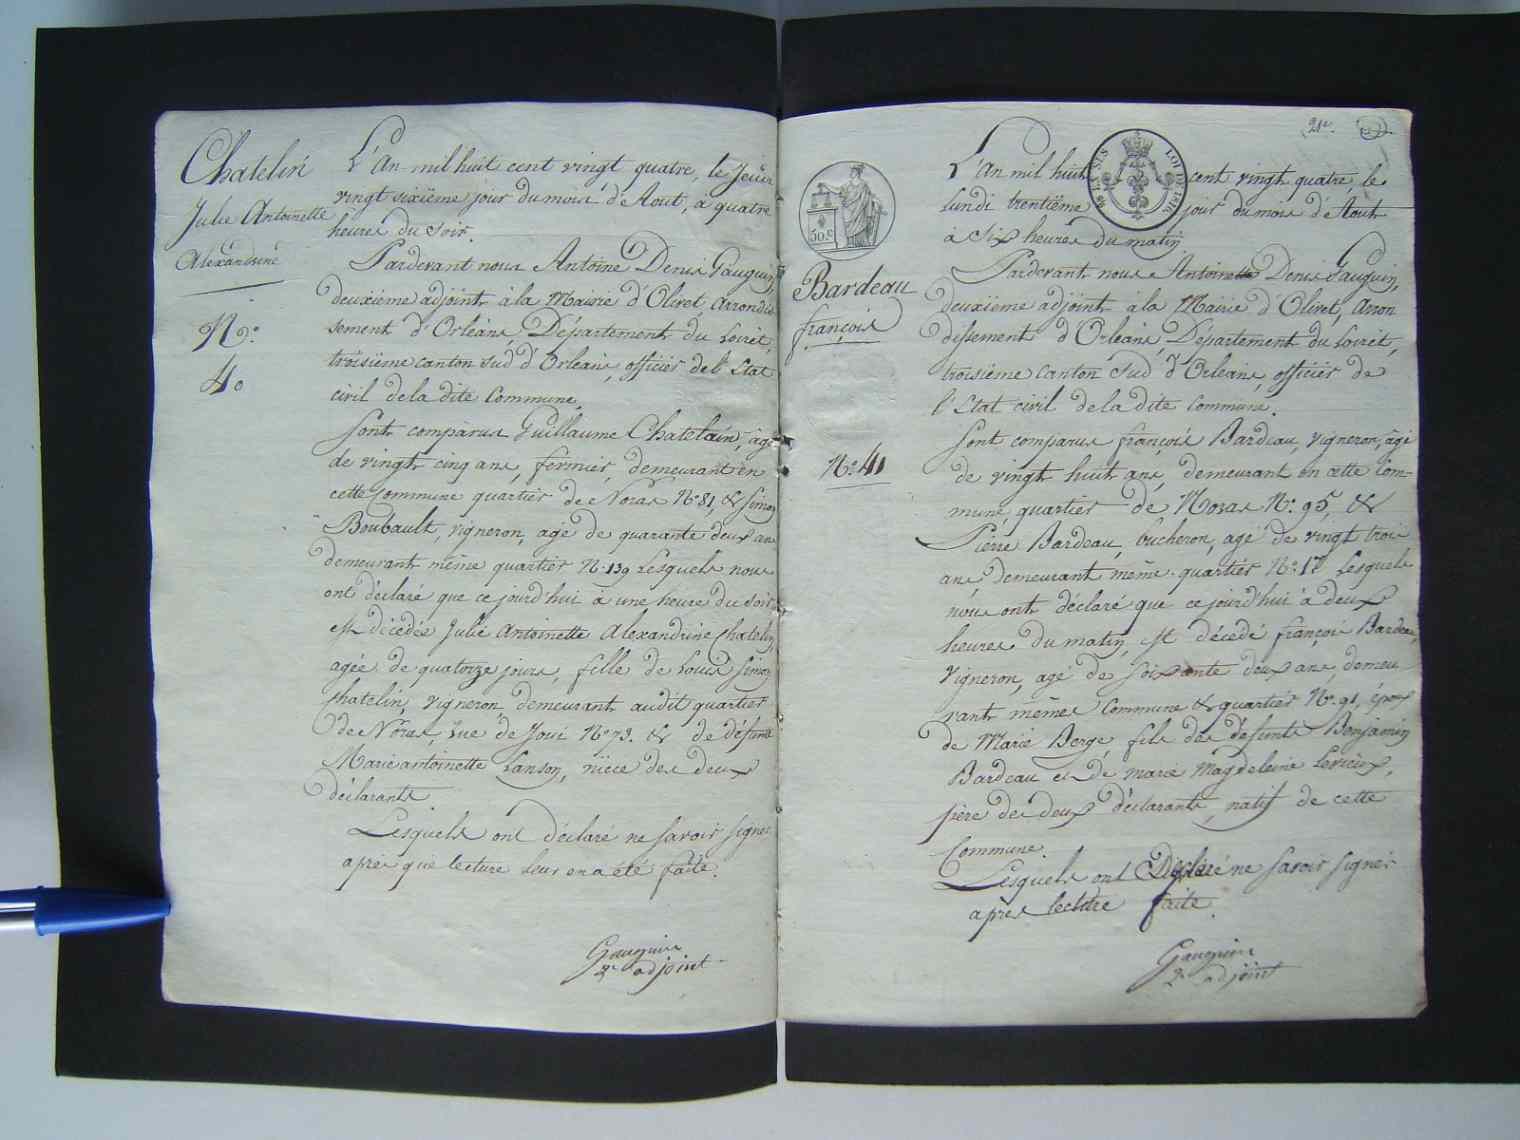 Chatelin
Julie Antoinette
Alexandrine
N.o
40
L'An mil huit cent vingt quatre, le Jeudi
vingt sixième jour du mois d'Aout, à quatre
heures du soir.
Pardevant nous Antoine Denis Gauguin,
deuxième adjoint à la Mairie d'Olivet, arrondis
sement d'Orléans, Département du Loiret,
troisième canton Sud d'Orléans, officier de l'Etat
civil de la dite Commune,
Sont comparus Guillaume Chatelain, agé
de vingt cinq ans, fermier, demeurant en
cette Commune quartier de Noras N.o 81, & Simon
Boubault, vigneron, agé de quarante deux ans
demeurant même quartier N.o 139 Lesquels nous
ont déclaré que ce jourd'hui à une heure du soir,
est décédée Julie Antoinette Alexandrine Chatelin,
agée de quatorze jours, fille de Louis Simon
Chatelin, vigneron demeurant audit quartier
de Noras, rue de Joui N.o 73. & de défunte
Marie antoinette Lanson, nièce des deux
déclarants.
Lesquels ont déclaré ne savoir signer
après que lecture leur en a été faite.
Gauguin
2e adjoint
21e.
50c
LOI DE 1816
Bardeau
françois
N.o 41
L'An mil huit cent vingt quatre, le
lundi trentième jour du mois d'Aout
à Six heures du matin
Pardevant nous Antoine Denis Gauguin,
deuxième adjoint à la Mairie d'Olivet, arron
dissement d'Orléans, Département du Loiret,
troisième canton Sud d'Orléans, officier de
l'Etat civil de la dite Commune.
Sont comparus françois Bardeau, vigneron, agé
de vingt huit ans, demeurant en cette Com-
mune, quartier de Noras N.o 95, &
Pierre Bardeau, bucheron, agé de vingt trois
ans demeurant même quartier N.o 17 Lesquels
nous ont déclaré que ce jourd'hui à deux
heures du matin, est décédé françois Bardeau,
vigneron, agé de soixante deux ans, demeu
rant même Commune & quartier N.o 91, époux
de Marie Berge, fils de défunts Benjamin
Bardeau et de marie Magdeleine Levieux,
père des deux déclarants, natif de cette
Commune.
Lesquels ont Déclaré ne savoir signer
après lecture faite.
Gauguin
2e adjoint